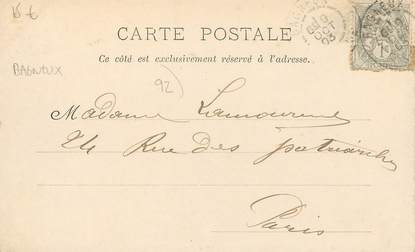 15 €
CARTE POSTALE
Ce côté est exclusivement réservé à l'adresse.
BAGNEUX
92)
Madame Lamoureux
24 Rue des patriarches
Paris